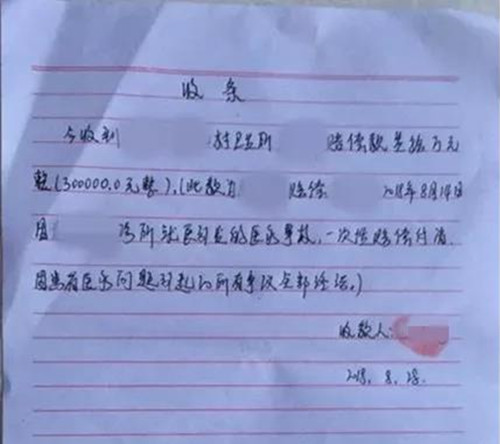 收条
今收到 村卫生所 赔偿款叁拾万元
整(300000.0元整),(此款为 赔偿 2018年8月14日
因 诊所就医引起的医疗事故,一次性赔偿付清,
因患者医疗问题引起的所有争议全部终结。)
收款人:
2018. 8. 28.